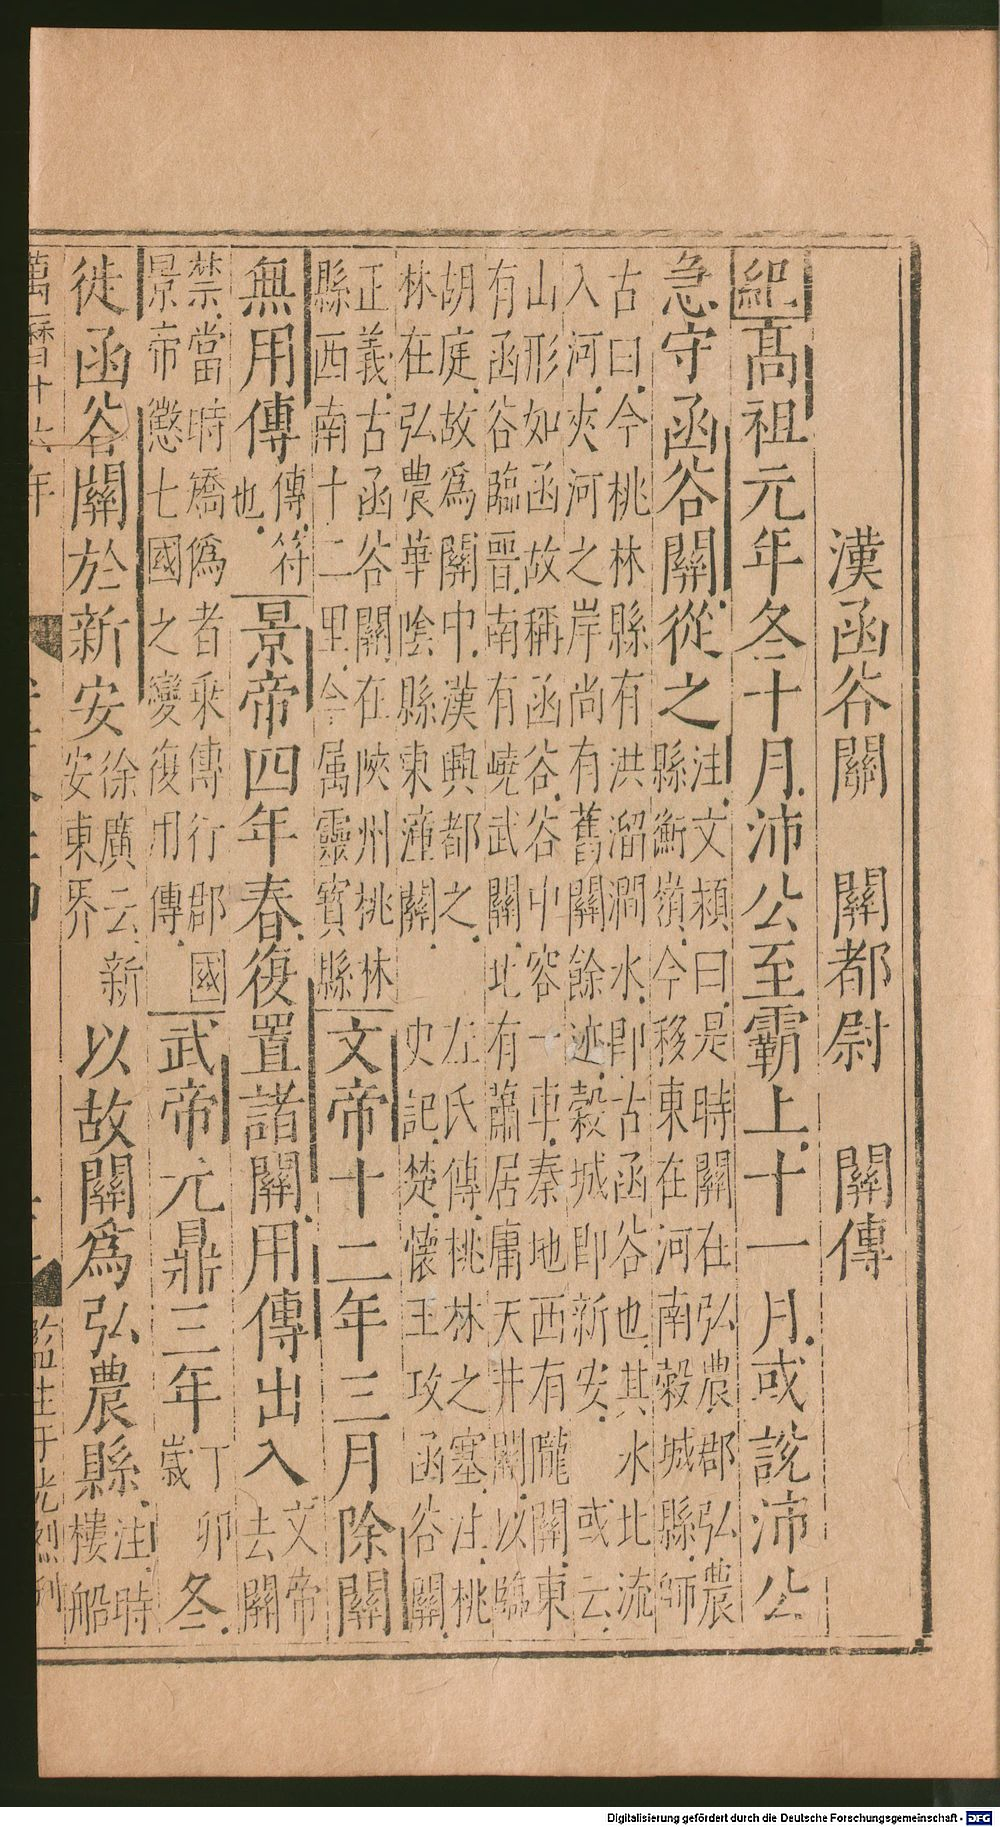 漢函谷關 關都尉 關傳
紀高祖元年冬十月沛公至霸上十一月或說沛公
急守函谷關從之
注文穎曰是時關在弘農郡弘農
縣衡嶺今移東在河南榖城縣師
古曰今桃林縣有洪溜澗水即古函谷也其水北流
入河夾河之岸尚有舊關餘迹榖城即新安 或云
山形如函故稱函谷谷中容一車秦地西有隴關東
有函谷臨晉南有嶢武關北有蕭居庸天井關以臨
胡庭故爲關中漢興都之 左氏傳桃林之塞注桃
林在弘農華陰縣東潼關 史記楚懷王攻函谷關
正義古函谷關在陝州桃林
縣西南十二里今属靈寶縣
文帝十二年三月除關
無用傳
傳符
也
景帝四年春復置諸關用傳出入
文帝
去關
禁當時矯偽者乘傳行郡國
景帝懲七國之變復用傳
武帝元鼎三年
丁卯
歲
冬
徙函谷關於新安
徐廣云新
安東界
以故關爲弘農縣
注時
樓船
萬曆十六年
Digitalisierung gefördert durch die Deutsche Forschungsgemeinschaft - DFG